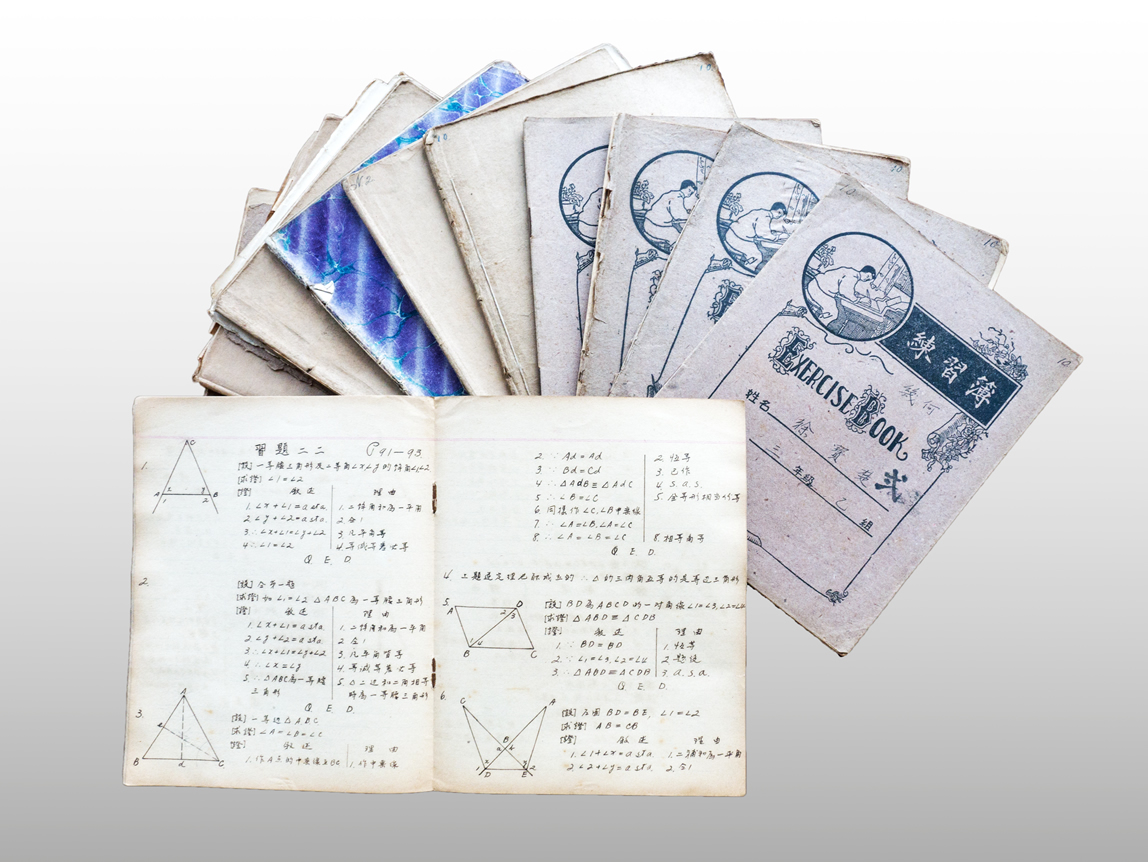 練習簿
幾何
EXERCISE BOOK
姓名 徐寶
三 年級 乙 組
10
習題二二 P91-93
1.
[設] 一等腰三角形及二等角∠x∠y的外角∠1∠2
[求證] ∠1=∠2
[證] 敘述 理由
1. ∠x+∠1=a sta. 1. 二鄰角和為一平角
2. ∠y+∠2=a sta. 2. 仝1
3. ∴∠x+∠1=∠y+∠2 3. 凡平角等
4. ∴∠1=∠2 4. 等減等差必等
Q. E. D.
2.
[設] 仝第一題
[求證] 如∠1=∠2 △ABC為一等腰三角形
[證] 敘述 理由
1. ∠x+∠1=a sta. 1. 二鄰角和為一平角
2. ∠y+∠2=a sta. 2. 仝1
3. ∴∠x+∠1=∠y+∠2 3. 凡平角皆等
4. ∴∠x=∠y 4. 等減等差必等
5. ∴△ABC為一等腰 5. △二邊和二角相等
三角形 時為一等腰三角形
Q. E. D.
3.
[設] 一等边△ABC
[求證] ∠A=∠B=∠C
[證] 敘述 理由
2. ∵ Ad=Ad 2. 恒等
3. ∵ Bd=Cd 3. 已作
4. ∴ △AdB≡△AdC 4. s.a.s.
5. ∴ ∠B=∠C
6. 同樣作∠C,∠B中垂線
7. ∴ ∠A=∠B,∠A=∠C
8. ∴ ∠A=∠B=∠C 8. 相等角等
Q. E. D.
4. 三題逆定理也能成立的 ∴△的三內角互等的是等边三角形
5.
[設] BD為ABCD的一对角線 ∠1=∠3,∠2=∠4
[求證] △ABD≡△CDB
[證] 敘述 理由
1. ∵ BD=BD 1. 恒等
2. ∵ ∠1=∠3,∠2=∠4 2. 題設
3. ∴ △ABD≡△CDB 3. a.s.a.
Q. E. D.
6.
[設] 左圖 BD=BE, ∠1=∠2
[求證] AB=CB
[證] 敘述 理由
1. ∠1+∠x=a sta. 1. 二角和為一平角
2. ∠2+∠y=a sta. 2. 仝1